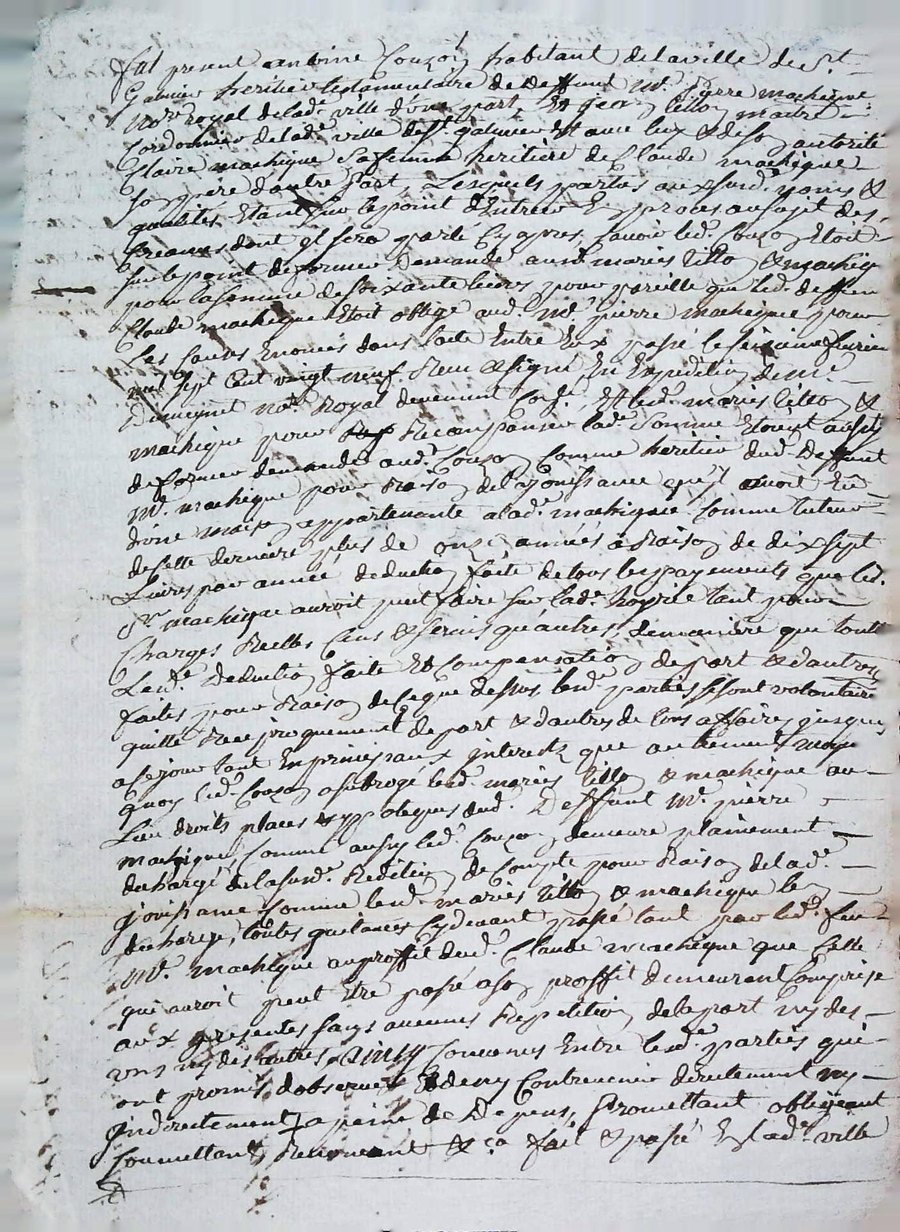 fut present antoine Couzon habitant de la ville de St
Galmier heritier testamentaire de deffunt Me pierre machique
Nore royal de lad. ville d'une part, Et jean tillon maitre
Cordonnier de lad. ville de St galmier Et avec luy & de son autorité
Claire machique sa femme heritiere de Claude machique
son pere d'autre Part, Lesquels parties aux susd. noms &
qualités Etant sur le point d'Entrer En proces au sujet des
Creances dont il sera parlé Cy apres savoir led. Couzon Etoit
sur le point de former Demande auxd. mariés tillon & machique
pour la somme de soixante livres pour pareille que led. deffunt
Claude machique Etoit obligé aud. Me pierre machique pour
Les Causes Enoncés dans l'acte Entre Eux passé le fevrier
mil sept Cent vingt neuf Receu & signé En Expedition de Me
not. Royal Et lesd. mariés tillon &
machique pour Recompenser lad. somme Etoient aussy
de former demande aud. Couzon Comme heritier dud. Deffunt
Me. machique pour Raison de la jouissance qu'il avoit Eu
d'une maison appartenante a lad. machique Comme tuteur
de Cette derniere plus de onze années a Raison de dix sept
Livres par année deduction faite de tous les payements que led.
Sr machique auroit peut faire sur lad. hoyrie tant pour
Charges Reelles Cens & servis qu'autres, de maniere que toutte
Lad. Deduction faite Et Compensation de part & d'autres
faites pour Raison de Ce que dessus, lesd. parties se sont volontairement
quitté Reciproquement de part & d'autres de tous affaires jusques
a Ce jour tant En principaux interests que autrement moyennant
quoy led. Couzon a subrogé lesd. mariés tillon & machique au
Lieu droits places & ypoteques dud. Deffunt Me. pierre
machique, Comme aussy led. Couzon demeure plainement
dechargé de la susd. Reddition de Compte pour Raison de lad.
jouissance Comme lesd. mariés tillon & machique le
decharge, toutes quitances Cy devant passé tant par led. feu
Me. machique au proffit dud. Claude machique que Celle
qui auroit peut Etre passé a son proffit demeurent Comprise
aux presentes sans aucunes Repetition de la part ny des
uns ny des autres. Ainsy Convenus Entre lesd. parties qui
ont promis d'observer & de ny Contrevenir directement ny
indirectement a peine de Depens, Promettant obligeant
Soumettant Renoncant & ça fait & passé En lad. ville